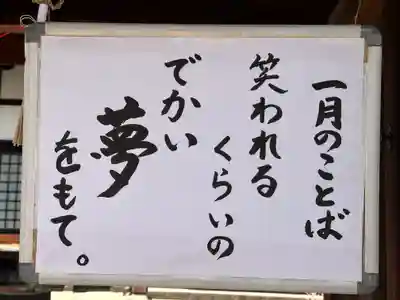 一月のことば
笑われる
くらいの
でかい
夢
をもて。